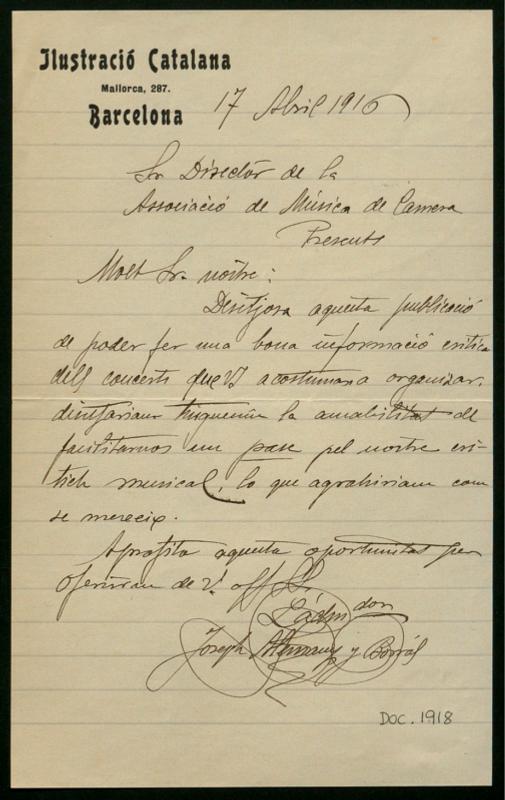 Ilustració Catalana
Mallorca, 287.
Barcelona
17 Abril 1916
Sr. Director de la
Associació de Música de Camera
Presents
Molt Sr. nostre:
Desitjosa aquesta publicació
de poder fer una bona informació crítica
dels concerts que V. acostuma a organizar,
desitjariam tinguessin la amabilitat de
facilitarnos un pase pel nostre crí-
tich musical, lo que agrahiriam com
se mereix.
Aprofita aquesta oportunitat per
oferirse de V. aff. Ss.
L'adm don
Joseph Alemany y Borrás
DOC. 1918